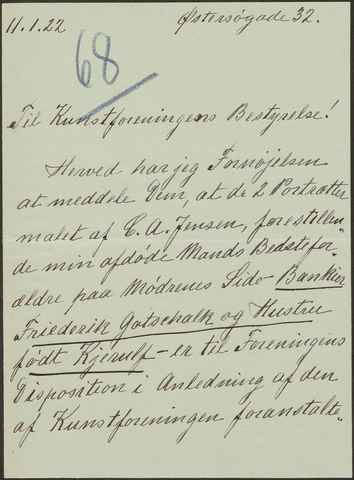 11.1.22 Østersøgade 32.
68
Til Kunstforeningens Bestyrelse!
Herved har jeg Fornøjelsen
at meddele Dem, at de 2 Portrætter
malet af C. A. Jensen, forestillen-
de min afdøde Mands Bedstefor-
ældre paa Mødrenes Side Bankier
Friederik Gotschalk og Hustru
født Kjerulf - er til Foreningens
Disposition i Anledning af den
af Kunstforeningen foranstalte-